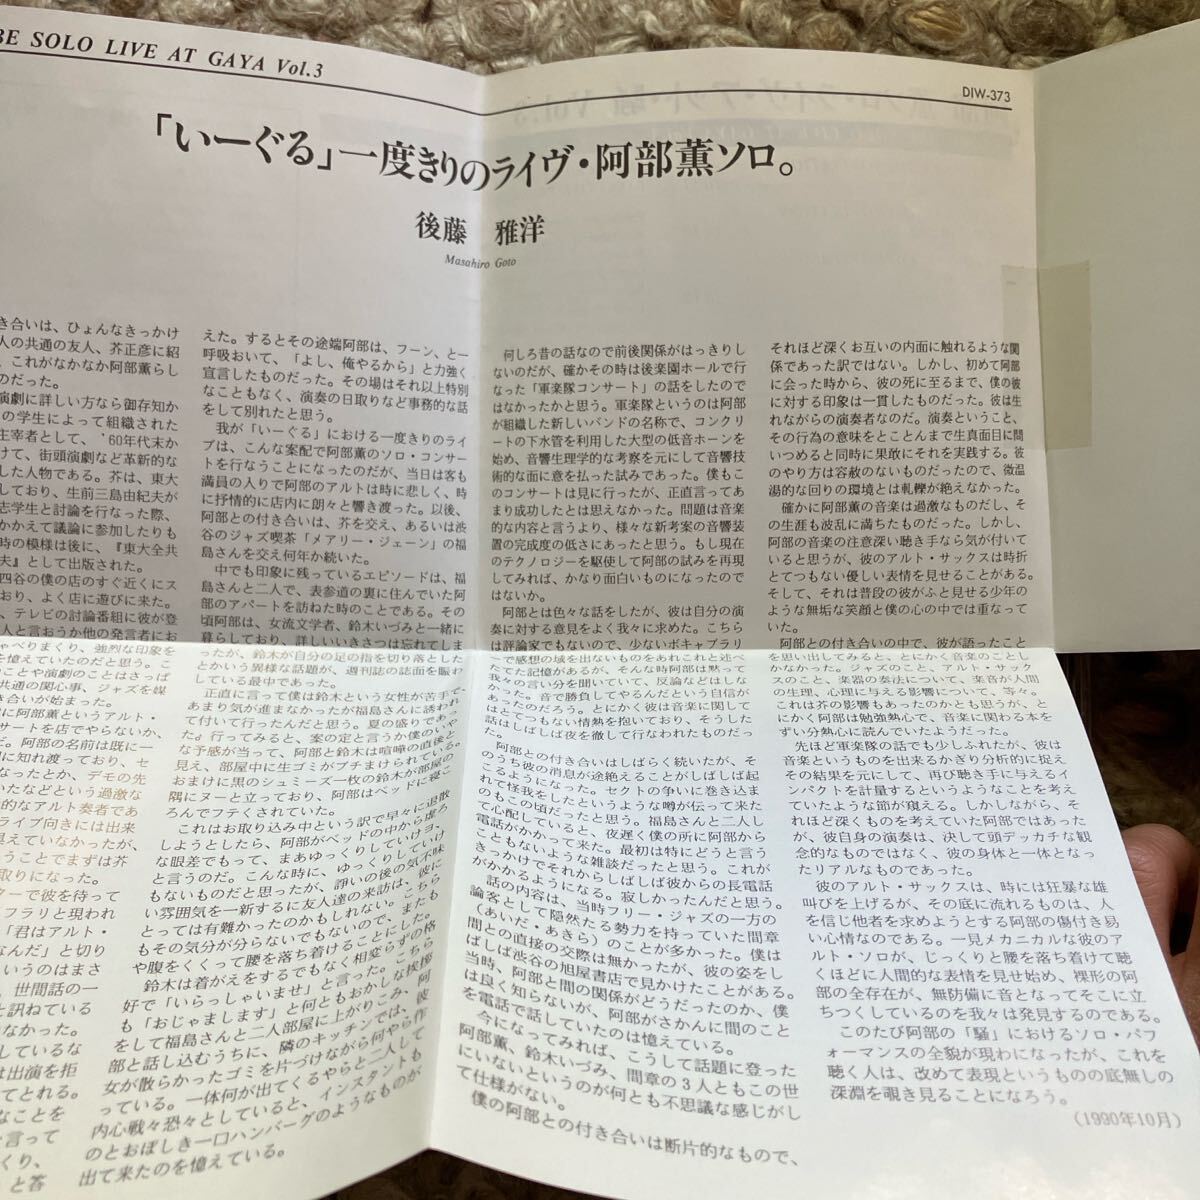 BE SOLO LIVE AT GAYA Vol.3
DIW-373
「いーぐる」一度きりのライヴ・阿部薫ソロ。
後藤 雅洋
Masahiro Goto
き合いは、ひょんなきっかけ
人の共通の友人、芥正彦に紹
、これがなかなか阿部薫らし
のだった。
演劇に詳しい方なら御存知か
の学生によって組織された
主宰者として、'60年代末か
けて、街頭演劇など革新的な
した人物である。芥は、東大
しており、生前三島由紀夫が
志学生と討論を行なった際、
かかえて議論に参加したりも
時の模様は後に、『東大全共
夫』として出版された。
四谷の僕の店のすぐ近くにス
おり、よく店に遊びに来た。
、テレビの討論番組に彼が登
人と言おうか他の発言者にお
ゃべりまくり、強烈な印象を
を憶えていたのだと思う。こ
ことや演劇のことはさっぱ
共通の関心事、ジャズを媒
き合いが始まった。
に阿部薫というアルト・
サートを店でやらないか、
だ。阿部の名前は既に一
間に知れ渡っており、セ
なったとか、デモの先
いたなどという過激な
的なアルト奏者であ
ライブ向きには出来
見えていなかったが、
うことでまずは芥
取りになった。
ターで彼を待って
フラリと現われ
「君はアルト・
なんだ」と切り
いうのはまさ
、世間話の一
と訊ねている
なかった。
しているな
は出演を拒
てとれる。
なことを
言って
くり、
と答
えた。するとその途端阿部は、フーン、と一
呼吸おいて、「よし、俺やるから」と力強く
宣言したものだった。その場はそれ以上特別
なこともなく、演奏の日取りなど事務的な話
をして別れたと思う。
我が「いーぐる」における一度きりのライ
ブは、こんな案配で阿部薫のソロ・コンサー
トを行なうことになったのだが、当日は客も
満員の入りで阿部のアルトは時に悲しく、時
に抒情的に店内に朗々と響き渡った。以後、
阿部との付き合いは、芥を交え、あるいは渋
谷のジャズ喫茶「メアリー・ジェーン」の福
島さんを交え何年か続いた。
中でも印象に残っているエピソードは、福
島さんと二人で、表参道の裏に住んでいた阿
部のアパートを訪ねた時のことである。その
頃阿部は、女流文学者、鈴木いづみと一緒に
暮らしており、詳しいいきさつは忘れてしま
ったが、鈴木が自分の足の指を切り落とした
とかいう異様な話題が、週刊誌の誌面を賑わ
している最中であった。
正直に言って僕は鈴木という女性が苦手で、
あまり気が進まなかったが福島さんに誘われ
て付いて行ったんだと思う。夏の盛りであっ
た。行ってみると、案の定と言うか僕のいや
な予感が当って、阿部と鈴木は喧嘩の直後と
見え、部屋中に生ゴミがブチまけられている。
おまけに黒のシュミーズ一枚の鈴木が部屋の
隅にヌーと立っており、阿部はベッドに寝こ
ろんでフテくされていた。
これはお取り込み中という訳で早々に退散
しようとしたら、阿部がベッドの中から虚ろ
な眼差でもって、まあゆっくりしていけヨ、
と言うのだ。こんな時に、ゆっくりしていけ
もないものだと思ったが、諍いの後の気不味
い雰囲気を一新するに友人達の来訪は、彼に
とっては有難かったのかもしれない。こちら
もその気分が分らないでもないので、またも
や腹をくくって腰を落ち着けることにした。
鈴木は着がえをするでもなく相変らずの格
好で「いらっしゃいませ」と言った。こちら
も「おじゃまします」と何ともおかしな挨拶
をして福島さんと二人部屋に上がりこみ、阿
部と話し込むうちに、隣のキッチンでは、彼
女が散らかったゴミを片づけながら何やら作
っている。一体何が出てくるやらと二人して
内心戦々恐々としていると、インスタントも
のとおぼしき一口ハンバーグのようなものが
出て来たのを憶えている。
何しろ昔の話なので前後関係がはっきりし
ないのだが、確かその時は後楽園ホールで行
なった「軍楽隊コンサート」の話をしたので
はなかったかと思う。軍楽隊というのは阿部
が組織した新しいバンドの名称で、コンクリ
ートの下水管を利用した大型の低音ホーンを
始め、音響生理学的な考察を元にして音響技
術的な面に意を払った試みであった。僕もこ
のコンサートは見に行ったが、正直言ってあ
まり成功したとは思えなかった。問題は音楽
的な内容と言うより、様々な新考案の音響装
置の完成度の低さにあったと思う。もし現在
のテクノロジーを駆使して阿部の試みを再現
してみれば、かなり面白いものになったので
はないか。
阿部とは色々な話をしたが、彼は自分の演
奏に対する意見をよく我々に求めた。こちら
は評論家でもないので、少ないボキャブラリ
ーで感想の域を出ないものをあれこれと述べ
てた記憶があるが、そんな時阿部は黙って
我々の言い分を聞いていて、反論などはしな
かった。音で勝負してやるんだという自信が
あったのだろう。とにかく彼は音楽に関して
はとてつもない情熱を抱いており、そうした
話はしばしば夜を徹して行なわれたものだっ
た。
阿部との付き合いはしばらく続いたが、そ
のうち彼の消息が途絶えることがしばしば起
こるようになった。セクトの争いに巻き込ま
れて怪我をしたというような噂が伝って来た
のもこの頃だったと思う。福島さんと二人し
て心配していると、夜遅く僕の所に阿部から
電話がかかって来た。最初は特にどうと言う
こともないような雑談だったと思う。これが
きっかけでそれからしばしば彼からの長電話
がかかるようになる。寂しかったんだと思う。
話の内容は、当時フリー・ジャズの一方の
論客として隠然たる勢力を持っていた間章
（あいだ・あきら）のことが多かった。僕は
間との直接の交際は無かったが、彼の姿をし
ばしば渋谷の旭屋書店で見かけたことがある。
当時、阿部と間の関係がどうだったのか、僕
は良く知らないが、阿部がさかんに間のこと
を電話で話していたのは憶えている。
今になってみれば、こうして話題に登った
阿部薫、鈴木いづみ、間章の3人ともこの世
にいないというのが何とも不思議な感じがし
て仕様がない。
僕の阿部との付き合いは断片的なもので、
それほど深くお互いの内面に触れるような関
係であった訳ではない。しかし、初めて阿部
に会った時から、彼の死に至るまで、僕の彼
に対する印象は一貫したものだった。彼は生
れながらの演奏者なのだ。演奏ということ、
その行為の意味をとことんまで生真面目に問
いつめると同時に果敢にそれを実践する。彼
のやり方は容赦のないものだったので、微温
湯的な回りの環境とは軋轢が絶えなかった。
確かに阿部薫の音楽は過激なものだし、そ
の生涯も波乱に満ちたものだった。しかし、
阿部の音楽の注意深い聴き手なら気が付いて
いると思うが、彼のアルト・サックスは時折
とてつもない優しい表情を見せることがある。
そして、それは普段の彼がふと見せる少年の
ような無垢な笑顔と僕の心の中では重なって
いた。
阿部との付き合いの中で、彼が語ったこと
を思い出してみると、とにかく音楽のことし
かなかった。ジャズのこと、アルト・サック
スのこと、楽器の奏法について、楽音が人間
の生理、心理に与える影響について、等々。
これは芥の影響もあったのかとも思うが、と
にかく阿部は勉強熱心で、音楽に関わる本を
ずい分熱心に読んでいたようだった。
先ほど軍楽隊の話でも少しふれたが、彼は
音楽というものを出来るかぎり分析的に捉え
その結果を元にして、再び聴き手に与えるイ
ンパクトを計量するというようなことを考え
ていたような節が窺える。しかしながら、そ
れほど深くものを考えていた阿部ではあった
が、彼自身の演奏は、決して頭デッカチな観
念的なものではなく、彼の身体と一体となっ
たリアルなものであった。
彼のアルト・サックスは、時には狂暴な雄
叫びを上げるが、その底に流れるものは、人
を信じ他者を求めようとする阿部の傷付き易
い心情なのである。一見メカニカルな彼のア
ルト・ソロが、じっくりと腰を落ち着けて聴
くほどに人間的な表情を見せ始め、裸形の阿
部の全存在が、無防備に音となってそこに立
ちつくしているのを我々は発見するのである。
このたび阿部の「騒」におけるソロ・パフ
ォーマンスの全貌が現わになったが、これを
聴く人は、改めて表現というものの底無しの
深淵を覗き見ることになろう。
（1990年10月）